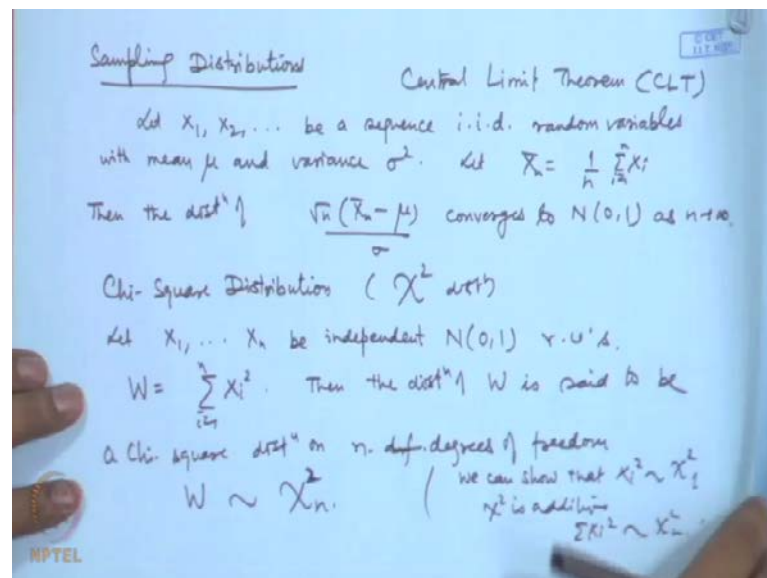 Sampling Distributions
Central Limit Theorem (CLT)
Let X₁, X₂, ... be a sequence i.i.d. random variables
with mean μ and variance σ². Let X̄ₙ = 1/n Σᵢ₌₁ⁿ Xᵢ
Then the distⁿ of √n (X̄ₙ - μ) / σ converges to N(0,1) as n→∞.
Chi-Square Distribution ( χ² distⁿ)
Let X₁, ... Xₙ be independent N(0,1) r.v's.
W = Σᵢ₌₁ⁿ Xᵢ². Then the distⁿ of W is said to be
a Chi-square distⁿ on n degrees of freedom
W ~ χ²ₙ.
( we can show that Xᵢ² ~ χ²₁
χ² is additive
ΣXᵢ² ~ χ²ₙ
NPTEL